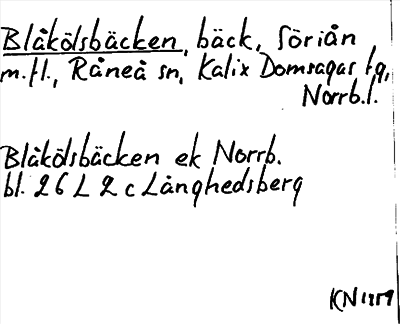 Blåkölsbäcken, bäck, Sörián
m.fl., Råneå sn, Kalix Domsagas tg,
Norrb.l.
Blåkölsbäcken ek Norrb.
bl. 26 L 2 c Långhedsberg
KN